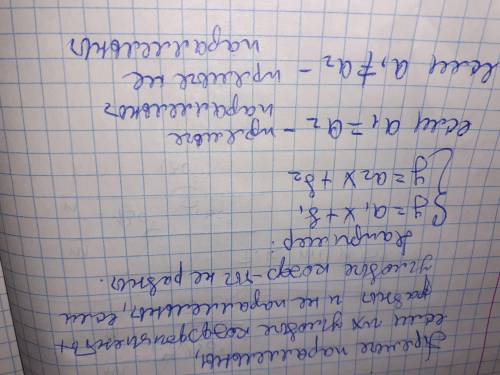 Прямые параллельны,
если их угловые коэффициенты
равны и не параллельны, если
угловые коэф-ты не равны.
Например:
{ y = a₁x + b₁
y = a₂x + b₂
если a₁ = a₂ - прямые
параллельны
если a₁ ≠ a₂ - прямые не
параллельны